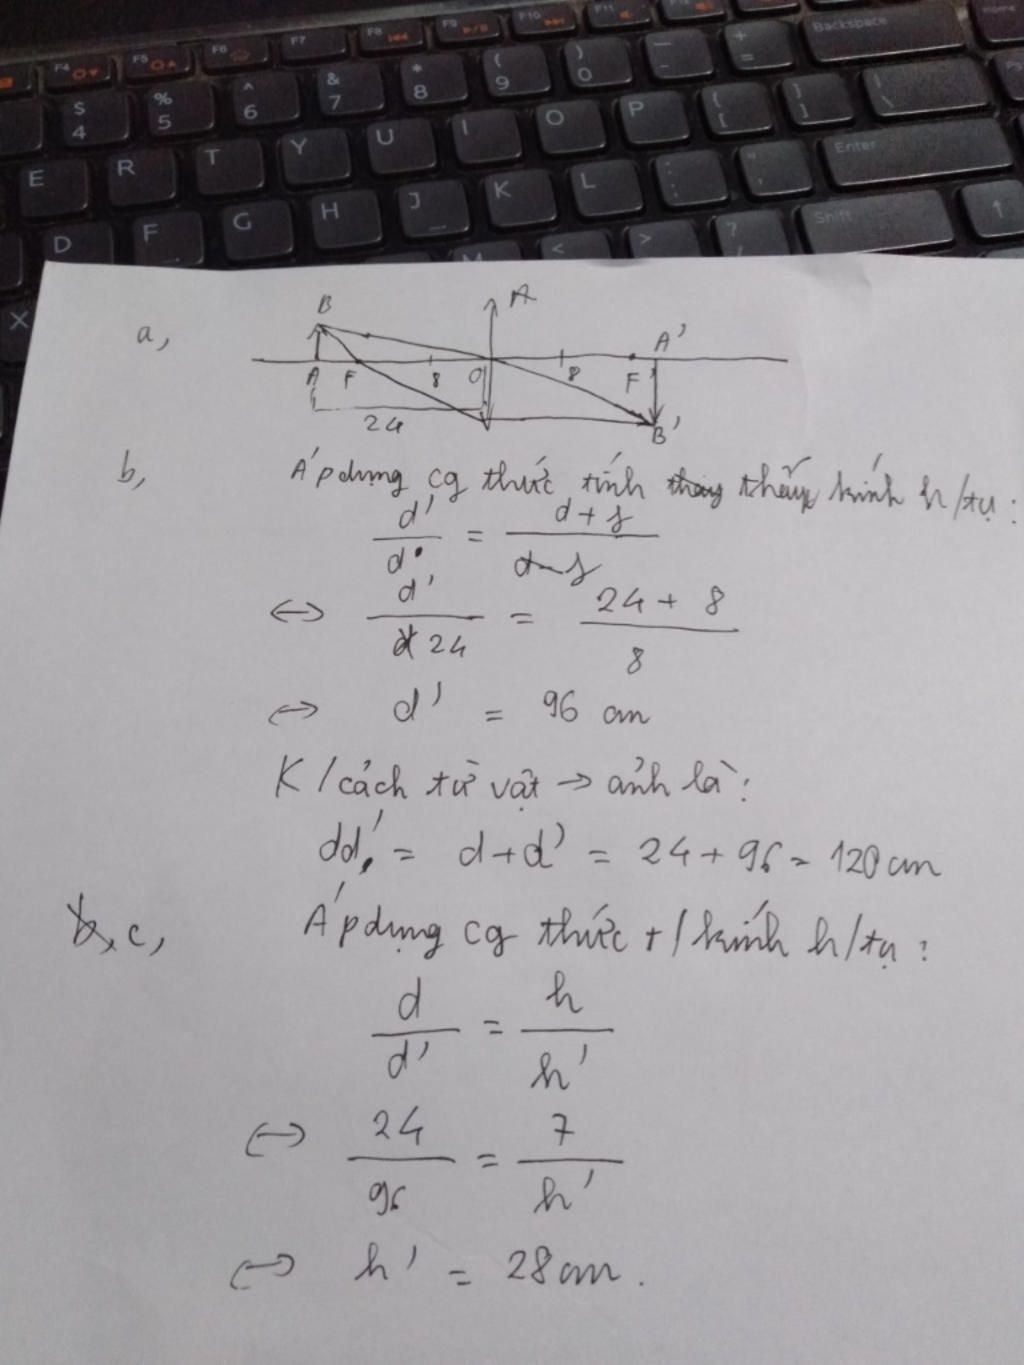 F4 F5 F6 F7 F8 F9 F10 F11
Backspace
$ 4 % 5 ^ 6 & 7 * 8 ( 9 ) 0 _ - + =
E R T Y U I O P { [ } ] | \
Enter
D F G H J K L : ; " '
X M < > ? / Shift ↑
B A
a, A'
A F 8 O 8 F'
24 B'
b, Áp dụng cg thức tính thấy kính h/tụ:
d'/d = d+f/d-f
⟷ d'/24 = 24 + 8/8
⟷ d' = 96 cm
K/cách từ vật → ảnh là:
dd' = d+d' = 24 + 96 = 120 cm
b, c, Áp dụng cg thức t/kính h/tụ:
d/d' = h/h'
⟷ 24/96 = 7/h'
⟷ h' = 28 cm.